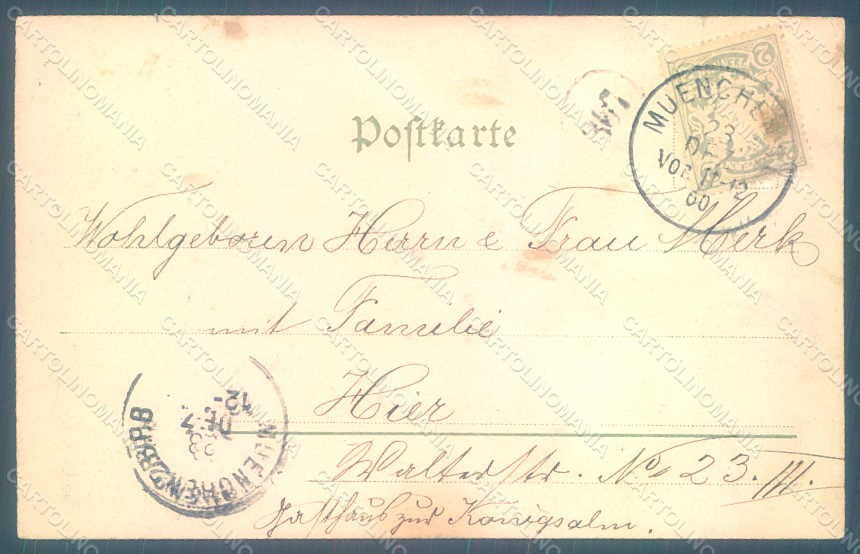 Postkarte
MUENCHEN
23
DEZ
VOR 11-12
00
Wohlgeboren Herrn & Frau Merk
mit Familie
Hier
Walterstr. No 23 III.
Gasthaus zur Königsalm.
MUENCHEN
23
DEZ
12-
CARTOLINOMANIA